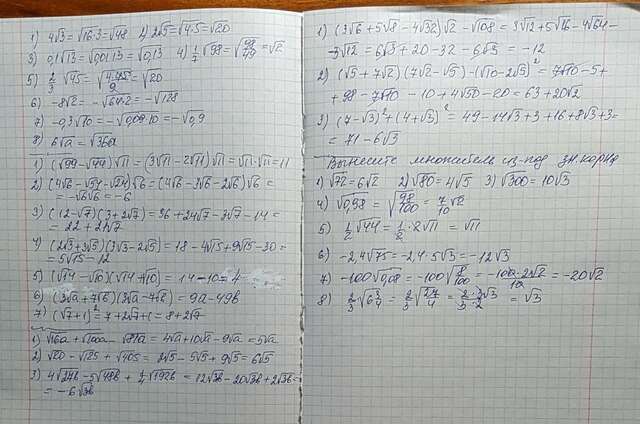 1) 4√3 = √16·3 = √48  2) 2√5 = √4·5 = √20
3) 0,1√13 = √0,01·13 = √0,13  4) 1/7 √98 = √98/49 = √2
5) 2/3 √45 = √4·45/9 = √20
6) -8√2 = -√64·2 = -√128
7) -0,3√10 = -√0,09·10 = -√0,9
8) 6√a = √36a
1) (√99 - √44)√11 = (3√11 - 2√11)√11 = √11·√11 = 11
2) (4√6 - √54 - √24)√6 = (4√6 - 3√6 - 2√6)√6 =
= -√6√6 = -6
3) (12-√7)(3+2√7) = 36 + 24√7 - 3√7 - 14 =
= 22 + 21√7
4) (2√3+3√5)(3√3-2√5) = 18 - 4√15 + 9√15 - 30 =
= 5√15 - 12
5) (√14 - √10)(√14 + √10) = 14 - 10 = 4
6) (3√a + 7√b)(3√a - 7√b) = 9a - 49b
7) (√7 + 1)² = 7 + 2√7 + 1 = 8 + 2√7
1) √16a + √100a - √81a = 4√a + 10√a - 9√a = 5√a
2) √20 - √125 + √405 = 2√5 - 5√5 + 9√5 = 6√5
= -6√3b
1) (3√6 + 5√8 - 4√32)√2 - √108 = 3√12 + 5√16 - 4√64 -
- 3√12 = 6√3 + 20 - 32 - 6√3 = -12
2) (√5 + 7√2)(7√2 - √5) - (√10 - 2√5)² = 7√10 - 5 +
+ 98 - 7√10 - 10 + 4√50 - 20 = 63 + 20√2
3) (7-√3)² + (4+√3)² = 49 - 14√3 + 3 + 16 + 8√3 + 3 =
= 71 - 6√3
Вынесите множитель из-под зн. корня
1) √72 = 6√2  2) √80 = 4√5  3) √300 = 10√3
4) √0,98 = √98/100 = 7/10 √2
5) 1/2 √44 = 1/2 · 2√11 = √11
6) -2,4√75 = -2,4·5√3 = -12√3
7) -100√0,08 = -100√8/100 = -100·2√2/10 = -20√2
8) 2/3 √6 3/4 = 2/3 √27/4 = 2·3√3/3·2 = √3